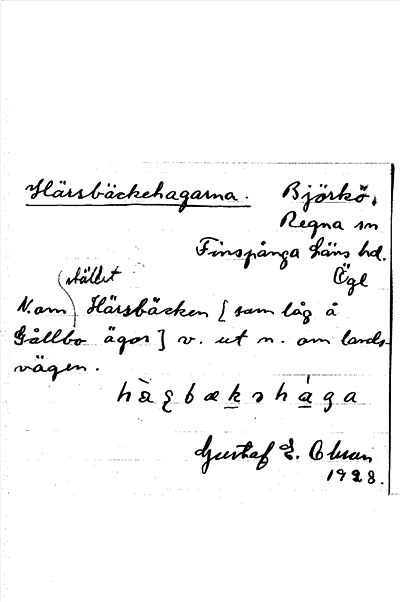 Härsbäckehagarna. Björkö,
Regna sn
Finspånga läns hd.
Ögl
stället
N. om Härsbäcken [ som låg å
Gållbo ägor ] v. ut n. om lands-
vägen.
Gustaf E. Olsson
1928.